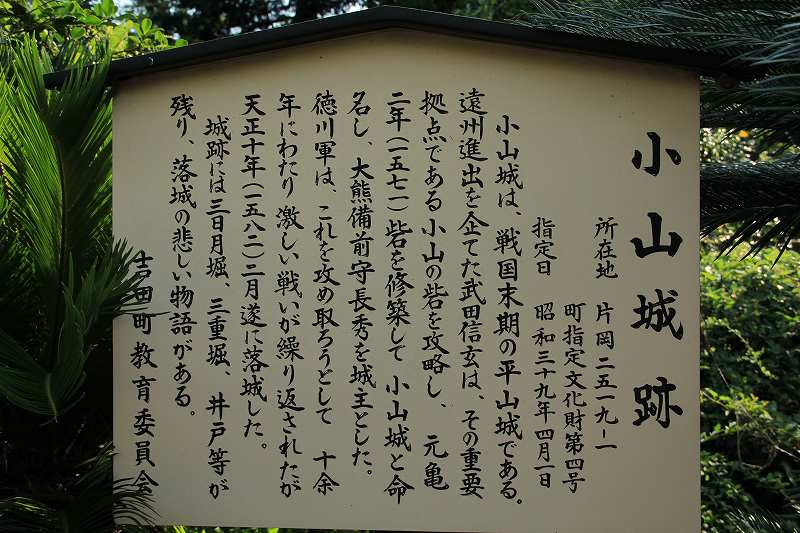 小山城跡
所在地　片岡二五一九−一
町指定文化財第四号
指定日　昭和三十九年四月一日
小山城は、戦国末期の平山城である。
遠州進出を企てた武田信玄は、その重要
拠点である小山の砦を攻略し、元亀
二年(一五七一)砦を修築して小山城と命
名し、大熊備前守長秀を城主とした。
徳川軍は、これを攻め取ろうとして十余
年にわたり激しい戦いが繰り返されたが
天正十年(一五八二)二月遂に落城した。
城跡には三日月堀、三重堀、井戸等が
残り、落城の悲しい物語がある。
吉田町教育委員会